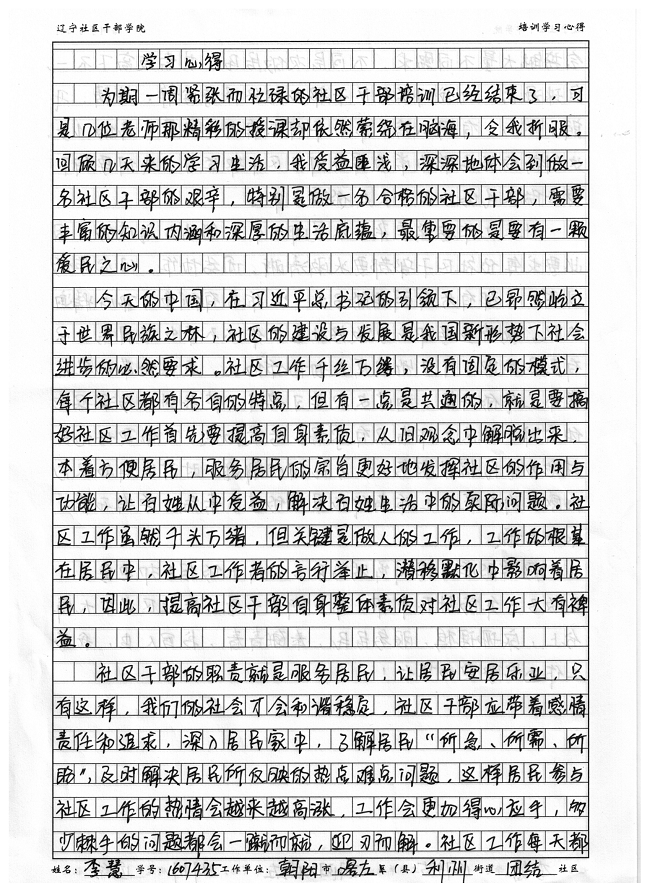 辽宁社区干部学院 培训学习心得
学习心得
为期一周紧张而忙碌的社区干部培训已经结束了，可
是几位老师那精彩的授课却依然萦绕在脑海，令我折服。
回顾几天来的学习生活，我受益匪浅，深深地体会到做一
名社区干部的艰辛，特别是做一名合格的社区干部，需要
丰富的知识内涵和深厚的生活底蕴，最重要的是要有一颗
爱民之心。
今天的中国，在习近平总书记的引领下，已昂然屹立
于世界民族之林，社区的建设与发展是我国新形势下社会
进步的必然要求。社区工作千丝万缕，没有固定的模式，
每个社区都有各自的特点，但有一点是共通的，就是要搞
好社区工作首先要提高自身素质，从旧观念中解脱出来
本着方便居民，服务居民的宗旨更好地发挥社区的作用与
功能，让百姓从中受益，解决百姓生活中的实际问题。社
区工作虽然千头万绪，但关键是做人的工作，工作的根基
在居民中，社区工作者的言行举止，潜移默化中影响着居
民，因此，提高社区干部自身整体素质对社区工作大有裨
益。
社区干部的职责就是服务居民，让居民安居乐业，只
有这样，我们的社会才会和谐稳定，社区干部应带着感情
责任和追求，深入居民家中，了解居民“所急、所需、所
盼”，及时解决居民所反映的热点难点问题，这样居民参与
社区工作的热情会越来越高涨，工作会更加得心应手，多
少棘手的问题都会一蹴而就，迎刃而解。社区工作每天都
姓名：李慧 学号：1607435 工作单位：朝阳市 喀左 区（县） 利州 街道 团结 社区